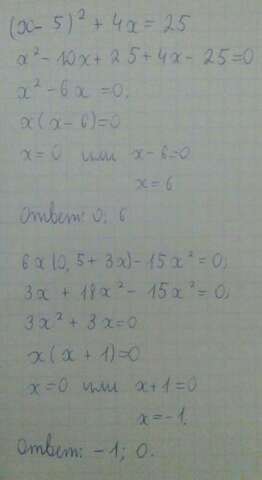 (x-5)² + 4x = 25
x² - 10x + 25 + 4x - 25 = 0
x² - 6x = 0;
x(x-6)=0
x=0 или x-6=0
x=6
Ответ: 0; 6
6x(0,5+3x)-15x²=0;
3x + 18x² - 15x² = 0;
3x² + 3x = 0
x(x+1)=0
x=0 или x+1=0
x=-1.
Ответ: -1; 0.